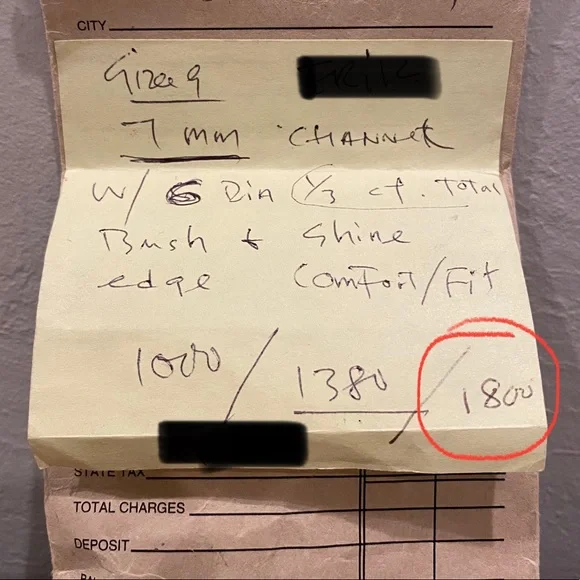 CITY
Size 9
7 mm CHANNEL
W/ 6 Dia 1/3 ct. Total
Brush + Shine
edge Comfort/Fit
1000 / 1380 / 1800
STATE TAX
TOTAL CHARGES
DEPOSIT